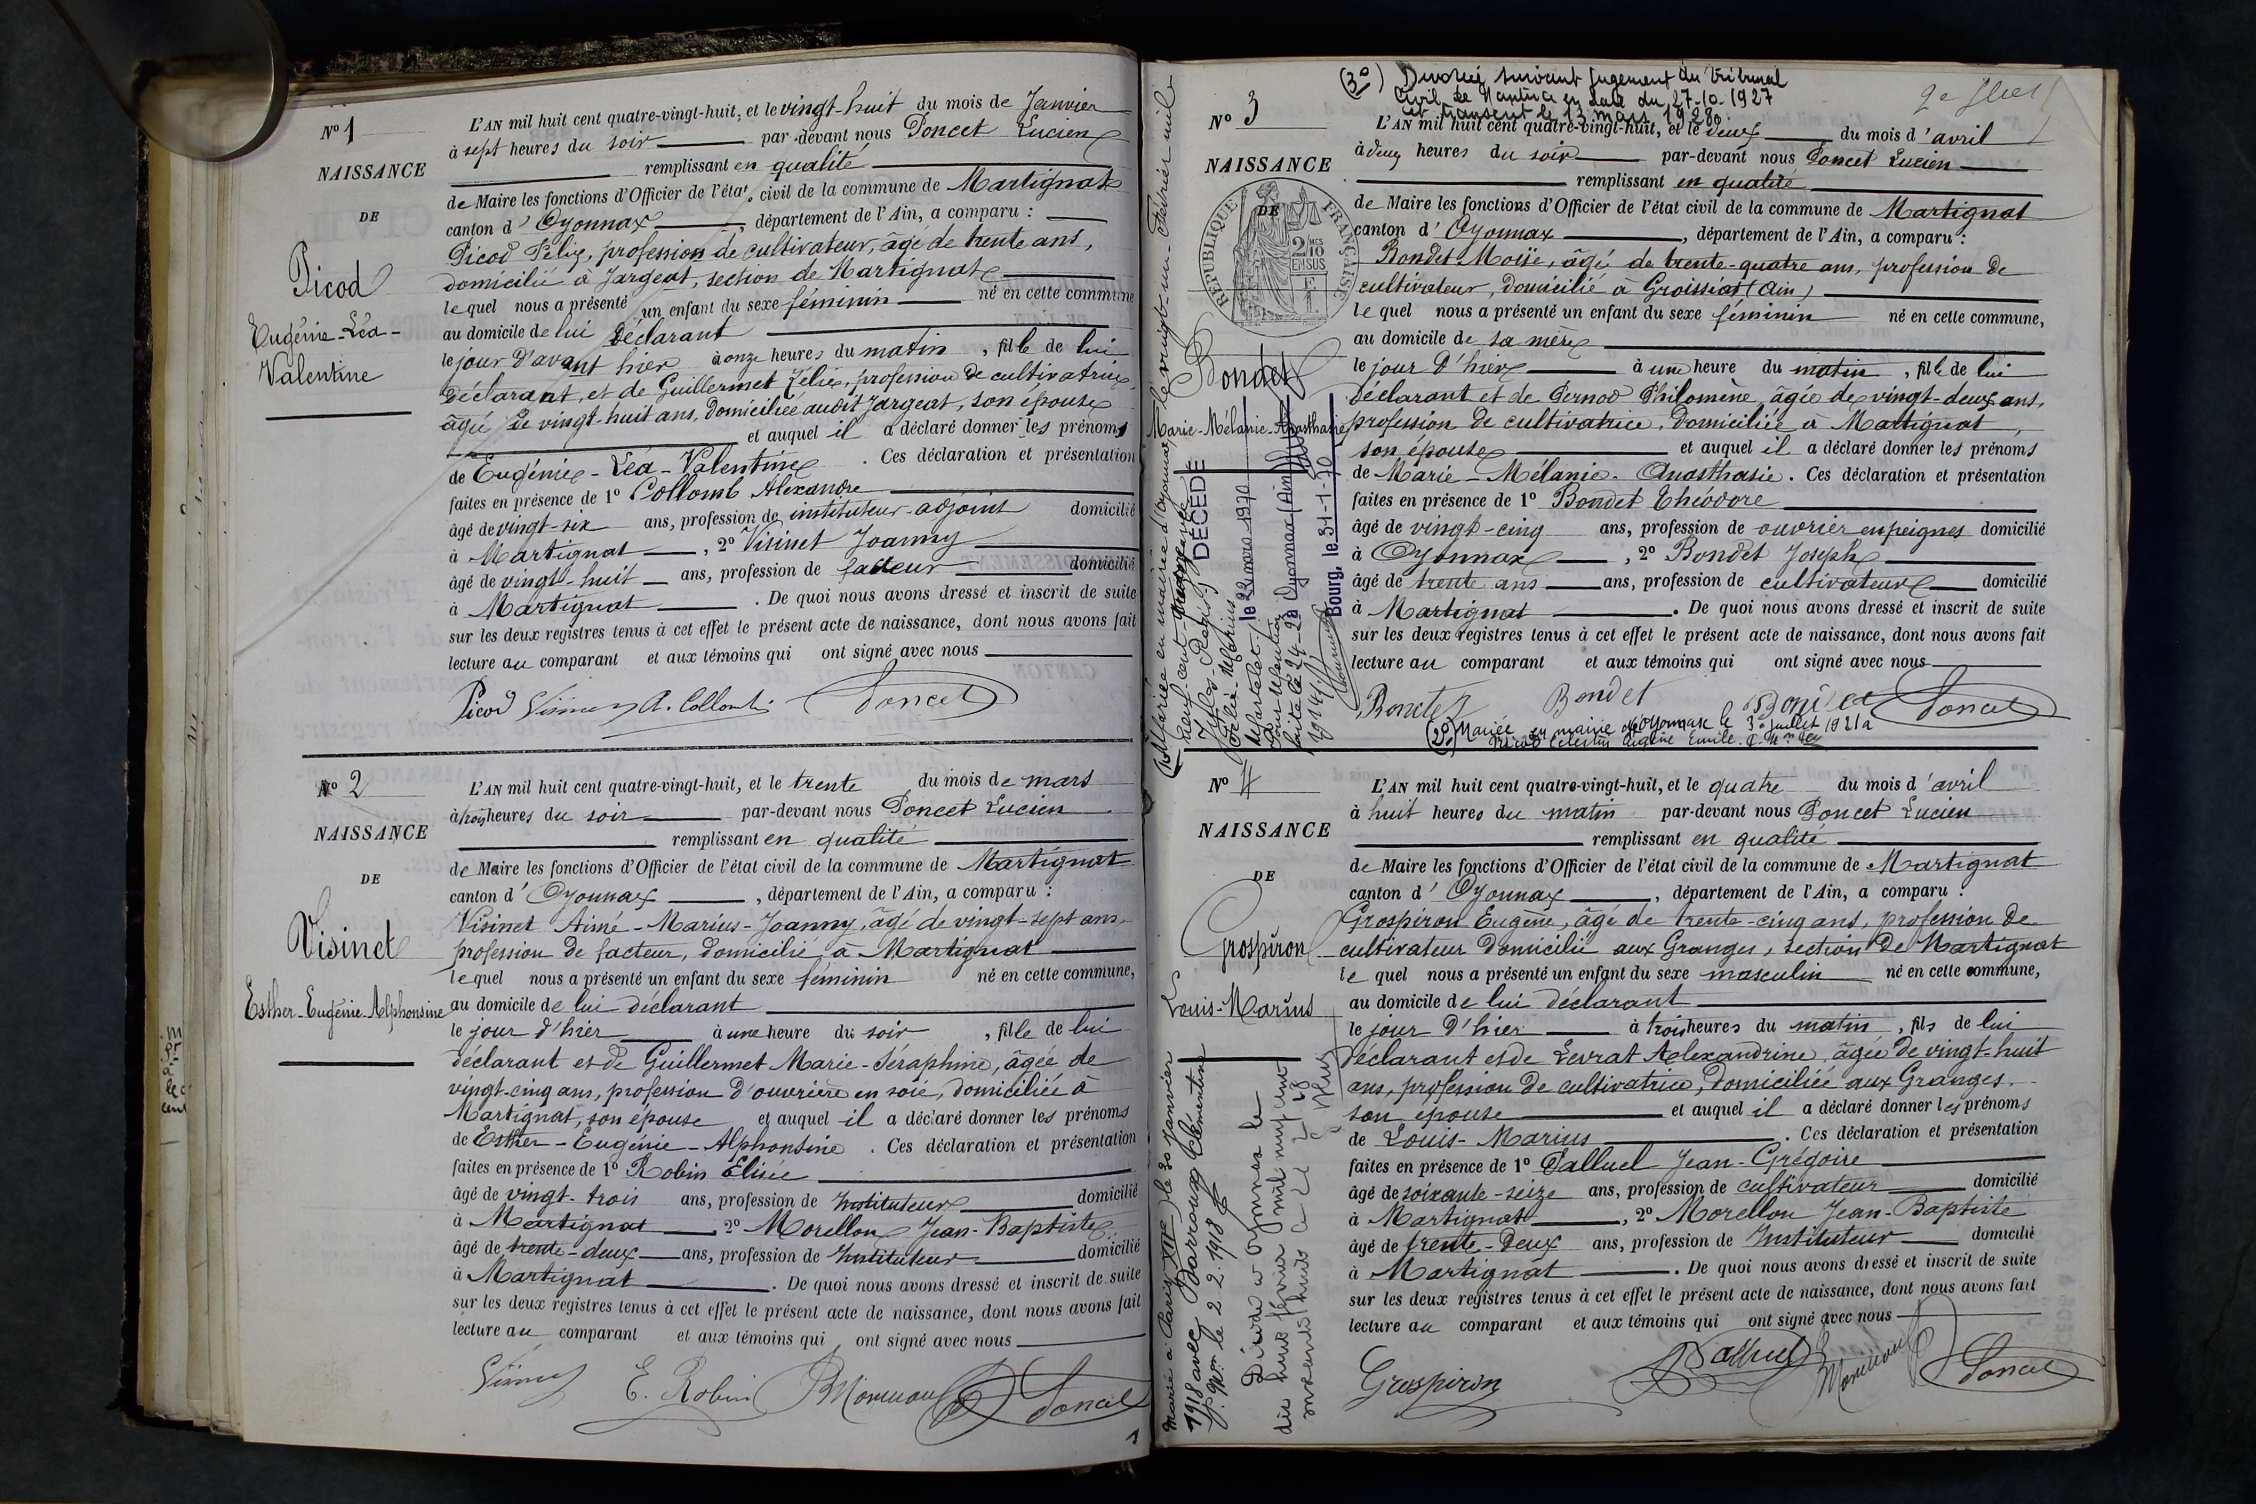 Nº 1
NAISSANCE
DE
Picod
Eugénie-Léa-
Valentine
L'AN mil huit cent quatre-vingt-huit, et le vingt-huit du mois de Janvier
à sept heures du soir par-devant nous Poncet Lucien
remplissant en qualité
de Maire les fonctions d'Officier de l'état civil de la commune de Martignat
canton d'Oyonnax, département de l'Ain, a comparu :
Picod Félix, profession de cultivateur, âgé de trente ans,
domicilié à Jargeat, section de Martignat
lequel nous a présenté un enfant du sexe féminin né en cette commune
au domicile de lui déclarant
le jour d'avant hier à onze heures du matin, fille de lui
déclarant, et de Guillermet Zélie, profession de cultivatrice
âgée de vingt-huit ans, domiciliée audit Jargeat, son épouse
et auquel il a déclaré donner les prénoms
de Eugénie-Léa-Valentine. Ces déclaration et présentation
faites en présence de 1º Collomb Alexandre
âgé de vingt-six ans, profession de instituteur-adjoint domicilié
à Martignat, 2º Visinet Joanny
âgé de vingt-huit ans, profession de facteur domicilié
à Martignat. De quoi nous avons dressé et inscrit de suite
sur les deux registres tenus à cet effet le présent acte de naissance, dont nous avons fait
lecture au comparant et aux témoins qui ont signé avec nous
Picod Visinet A. Collomb Poncet
Nº 2
NAISSANCE
DE
Visinet
Esther-Eugénie-Alphonsine
L'AN mil huit cent quatre-vingt-huit, et le trente du mois de mars
à trois heures du soir par-devant nous Poncet Lucien
remplissant en qualité
de Maire les fonctions d'Officier de l'état civil de la commune de Martignat
canton d'Oyonnax, département de l'Ain, a comparu :
Visinet Aimé-Marius-Joanny, âgé de vingt-sept ans
profession de facteur, domicilié à Martignat
lequel nous a présenté un enfant du sexe féminin né en cette commune,
au domicile de lui déclarant
le jour d'hier à une heure du soir, fille de lui
déclarant et de Guillermet Marie-Séraphine, âgée de
vingt-cinq ans, profession d'ouvrière en soie, domiciliée à
Martignat, son épouse et auquel il a déclaré donner les prénoms
de Esther-Eugénie-Alphonsine. Ces déclaration et présentation
faites en présence de 1º Robin Elisée
âgé de vingt-trois ans, profession de Instituteur domicilié
à Martignat 2º Morellon Jean-Baptiste
âgé de trente-deux ans, profession de Instituteur domicilié
à Martignat. De quoi nous avons dressé et inscrit de suite
sur les deux registres tenus à cet effet le présent acte de naissance, dont nous avons fait
lecture au comparant et aux témoins qui ont signé avec nous
Visinet E. Robin Morellon Poncet
1
2e
(3º) Divorcée suivant jugement du tribunal
civil de Nantua en date du 27-10-1927
et transcrit le 13 mars 1928
Nº 3
NAISSANCE
DE
REPUBLIQUE FRANÇAISE
Bondet
Marie-Mélanie-Anasthasie
L'AN mil huit cent quatre-vingt-huit, et le deux du mois d'avril
à deux heures du soir par-devant nous Poncet Lucien
remplissant en qualité
de Maire les fonctions d'Officier de l'état civil de la commune de Martignat
canton d'Oyonnax, département de l'Ain, a comparu :
Bondet Moïse, âgé de trente-quatre ans, profession de
cultivateur, domicilié à Groissiat (Ain)
lequel nous a présenté un enfant du sexe féminin né en cette commune,
au domicile de sa mère
le jour d'hier à une heure du matin, fille de lui
déclarant et de Pernod Philomène âgée de vingt-deux ans,
profession de cultivatrice, domiciliée à Martignat,
son épouse et auquel il a déclaré donner les prénoms
de Marie-Mélanie-Anasthasie. Ces déclaration et présentation
faites en présence de 1º Bondet Théodore
âgé de vingt-cinq ans, profession de ouvrier en peignes domicilié
à Oyonnax, 2º Bondet Joseph
âgé de trente ans ans, profession de cultivateur domicilié
à Martignat. De quoi nous avons dressé et inscrit de suite
sur les deux registres tenus à cet effet le présent acte de naissance, dont nous avons fait
lecture au comparant et aux témoins qui ont signé avec nous
Bondet Bondet Bondet Poncet
(2º) Mariée en mairie d'Oyonnax le 30 juillet 1921 à
Célestin Eugène Emile
(1º) Mariée en mairie d'Oyonnax, le vingt-un Février mil
neuf cent
Jules
Félix-Marius
DÉCÉDÉE
le 22 mars 1970
à Oyonnax (Ain)
Bourg, le 31-1-70
Nº 4
NAISSANCE
DE
Grospiron
Louis-Marius
L'AN mil huit cent quatre-vingt-huit, et le quatre du mois d'avril
à huit heures du matin par-devant nous Poncet Lucien
remplissant en qualité
de Maire les fonctions d'Officier de l'état civil de la commune de Martignat
canton d'Oyonnax, département de l'Ain, a comparu :
Grospiron Eugène, âgé de trente-cinq ans, profession de
cultivateur domicilié aux Granges, section de Martignat
lequel nous a présenté un enfant du sexe masculin né en cette commune,
au domicile de lui déclarant
le jour d'hier à trois heures du matin, fils de lui
déclarant et de Levrat Alexandrine, âgée de vingt-huit
ans, profession de cultivatrice, domiciliée aux Granges.
son épouse et auquel il a déclaré donner les prénoms
de Louis-Marius. Ces déclaration et présentation
faites en présence de 1º Palluel Jean-Grégoire
âgé de soixante-seize ans, profession de cultivateur domicilié
à Martignat, 2º Morellon Jean-Baptiste
âgé de trente-deux ans, profession de Instituteur domicilié
à Martignat. De quoi nous avons dressé et inscrit de suite
sur les deux registres tenus à cet effet le présent acte de naissance, dont nous avons fait
lecture au comparant et aux témoins qui ont signé avec nous
Grospiron Palluel Morellon Poncet
Marié à Paris XIIe le 30 Janvier
1918 avec Barroux Clémentine
le 2.2.1918
Décédé à Oyonnax le
dix huit février mil neuf cent
soixante huit